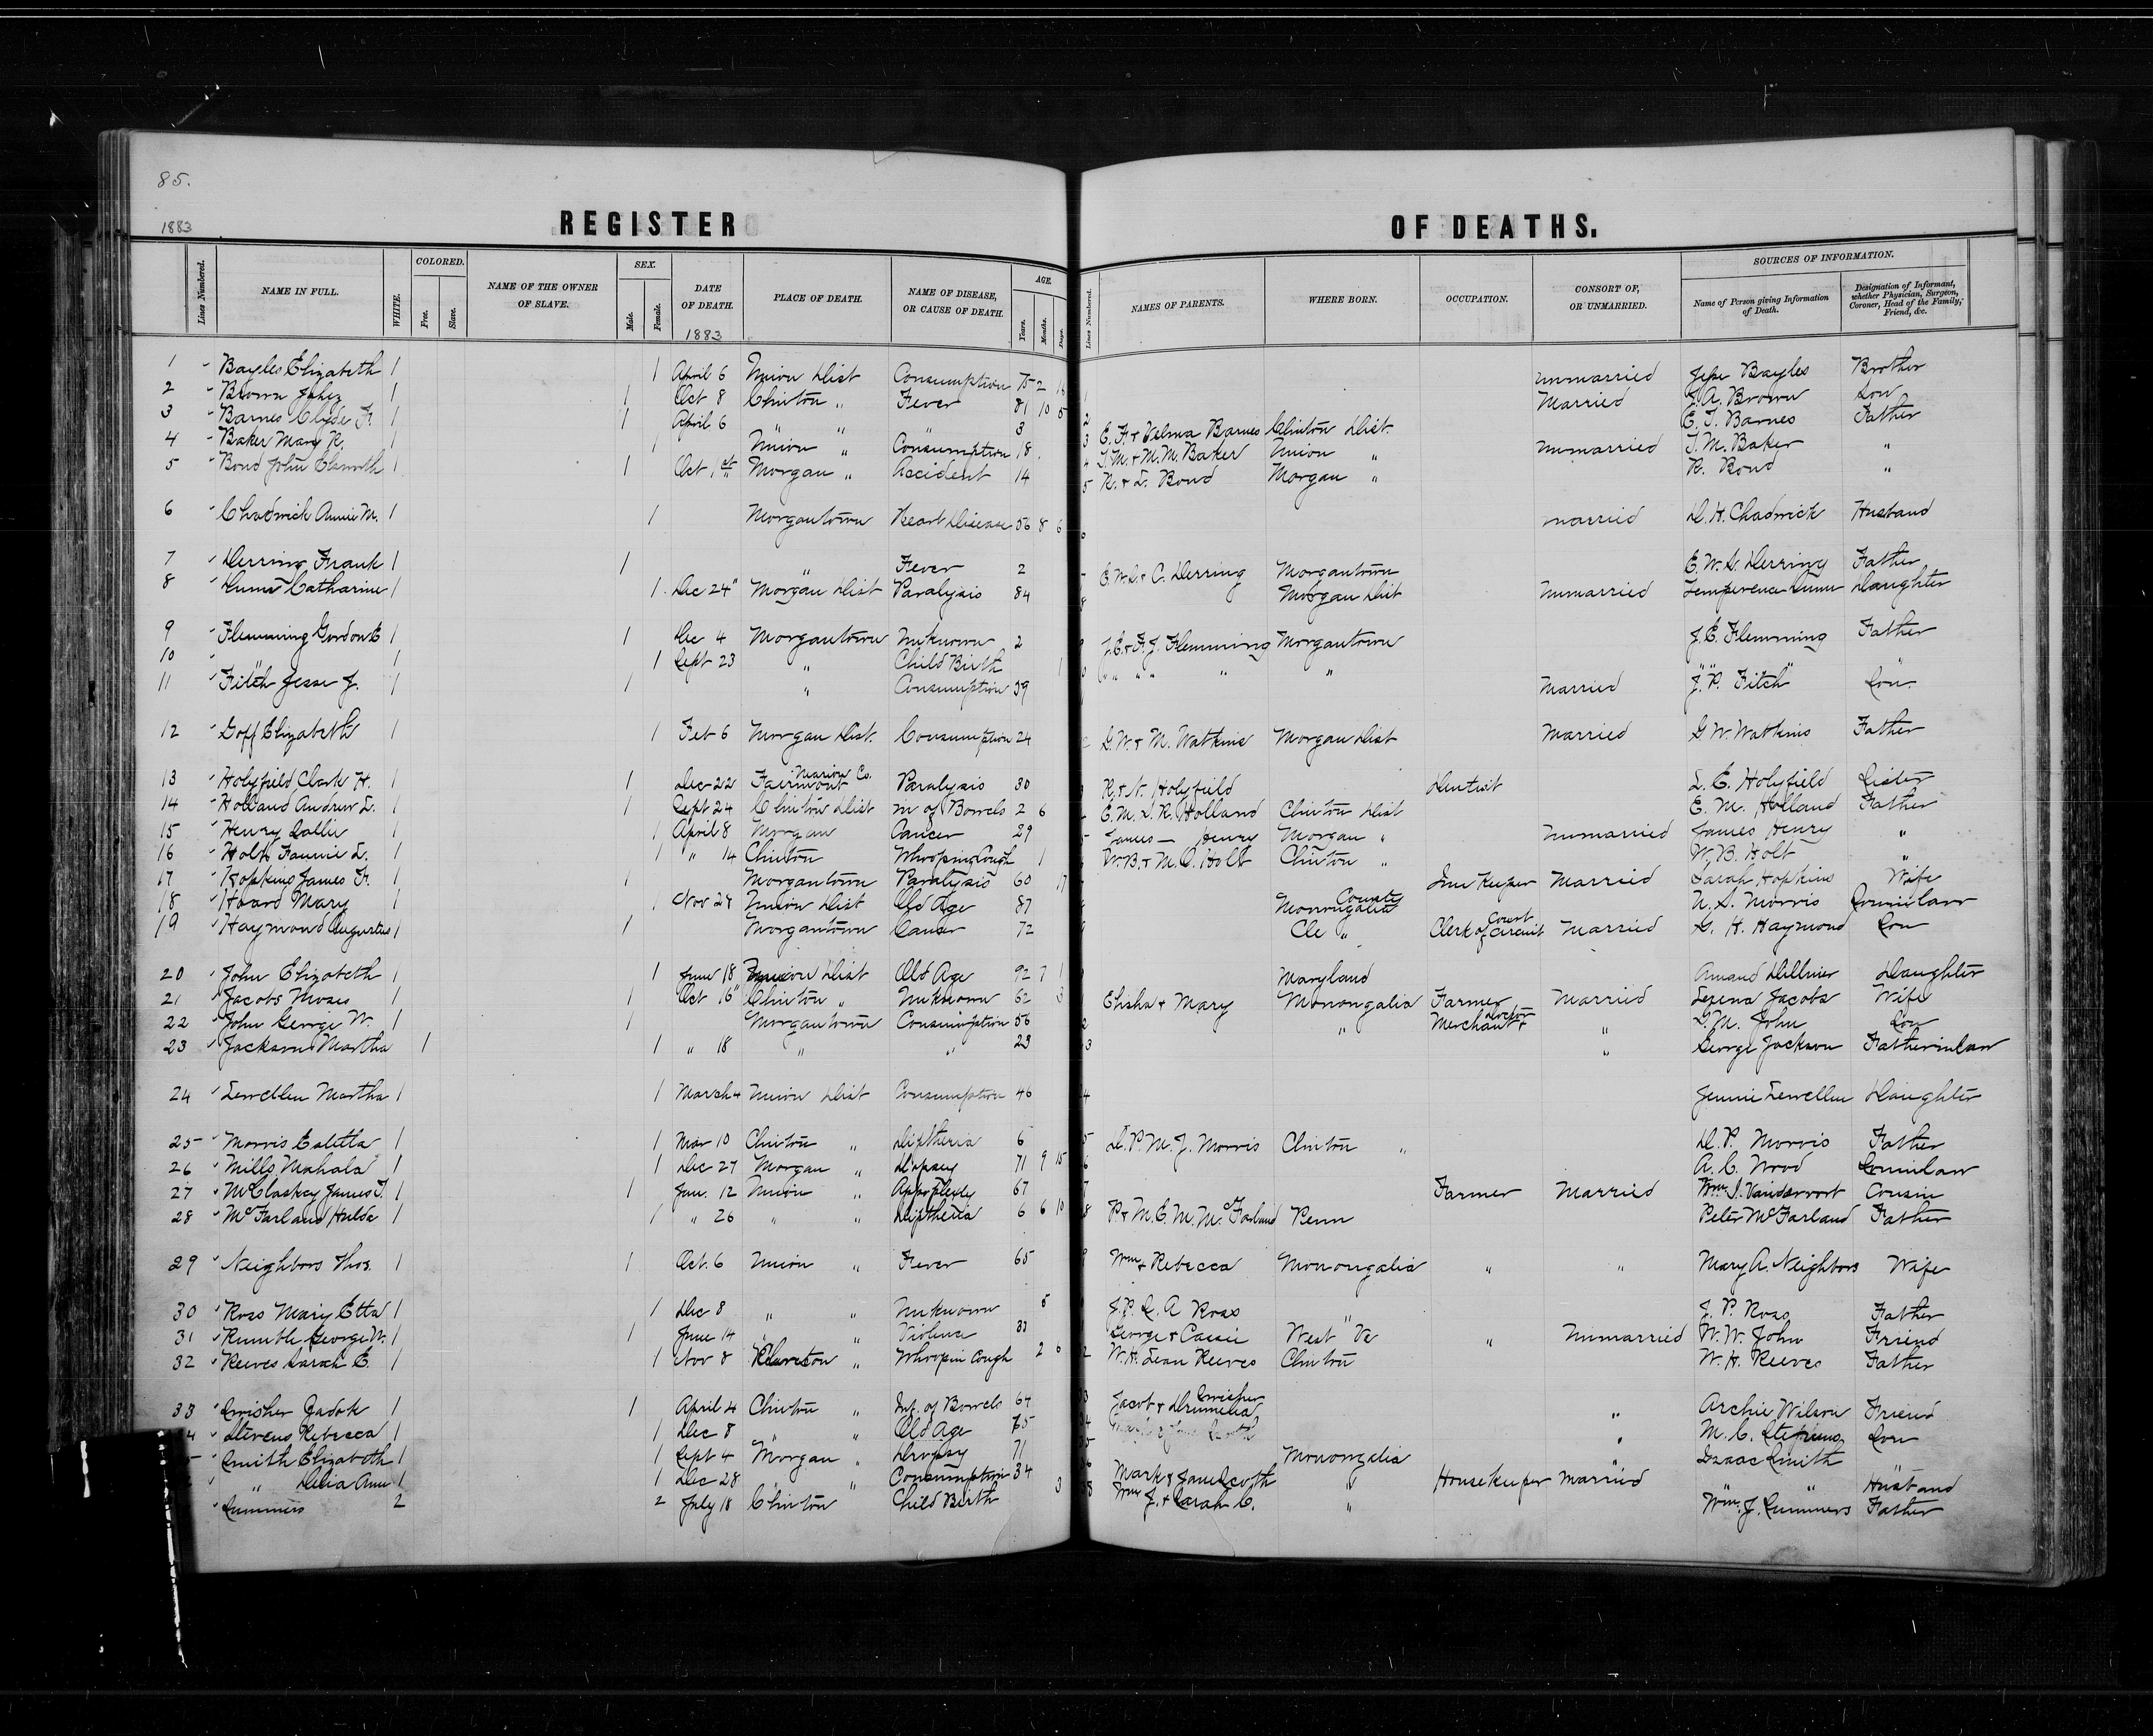 85.
1883
REGISTER OF DEATHS.
Lines Numbered. NAME IN FULL. WHITE. COLORED. Free. Slave. NAME OF THE OWNER OF SLAVE. SEX. Male. Female. DATE OF DEATH. 1883 PLACE OF DEATH. NAME OF DISEASE, OR CAUSE OF DEATH. AGE. Years. Months. Days. Lines Numbered. NAMES OF PARENTS. WHERE BORN. OCCUPATION. CONSORT OF, OR UNMARRIED. SOURCES OF INFORMATION. Name of Person giving Information of Death. Designation of Informant, whether Physician, Surgeon, Coroner, Head of the Family, Friend, &c.
1 Bayles Elizabeth 1 1 April 6 Union Dist Consumption 75 2 16 unmarried Jesse Bayles Brother
2 Brown Jabez 1 1 Oct 8 Clinton " Fever 81 10 5 Married J. A. Brown Son
3 Barnes Clyde F. 1 1 April 6 " " " 3 E. F. & Velma Barnes Clinton Dist. E. F. Barnes Father
4 Baker Mary R. 1 1 Union " Consumption 18 T. M. & M. M. Baker Union " unmarried T. M. Baker "
5 Bond John Elsworth 1 1 Oct 1st Morgan " Accident 14 R. & L. Bond Morgan " R. Bond "
6 Chadwick Annie M. 1 1 Morgantown Heart Disease 56 8 6 married D. H. Chadwick Husband
7 Derring Frank 1 1 " Fever 2 E. W. S. & C. Derring Morgantown E. W. S. Derring Father
8 Dunn Catharine 1 1 Dec 24" Morgan Dist Paralysis 84 Morgan Dist Unmarried Temperence Dunn Daughter
9 Flemming Gordon E 1 1 Dec 4 Morgantown Unknown 2 J. E. & F. J. Flemming Morgantown J. E. Flemming Father
10 " 1 1 Sept 23 " Child Birth 1 " " " " " " " "
11 Fitch Jesse J. 1 1 " Consumption 59 Married J. P. Fitch Son.
12 Goff Elizabeth 1 1 Feb 6 Morgan Dist. Consumption 24 G. W. & M. Watkins Morgan Dist Married G. W. Watkins Father
13 Holyfield Clark H. 1 1 Dec 22 Fairmont Marion Co. Paralysis 30 R. & N. Holyfield Dentist L. E. Holyfield Sister
14 Holland Andrew L. 1 1 Sept 24 Clinton Dist in of Bowels 2 6 E. M. S. R. Holland Clinton Dist E. M. Holland Father
15 Henry Sallie 1 1 April 8 Morgan Cancer 29 James — Henry Morgan " unmarried James Henry "
16 Holt Fannie L. 1 1 " 14 Clinton Whooping Cough 1 W. B. & M. C. Holt Clinton " W. B. Holt "
17 Hopkins James F. 1 1 Morgantown Paralysis 60 17 Inn Keeper Married Sarah Hopkins Wife
18 Hoard Mary 1 1 Nov 24 Union Dist Old Age 87 Monongalia County U. S. Morris
19 Haymond Augustus 1 1 Morgantown Cancer 72 " Clerk of Circuit Court Married G. H. Haymond Son
20 John Elizabeth 1 1 June 18 Union Dist Old Age 92 7 1 Maryland Dilliner Daughter
21 Jacobs Moses 1 1 Oct 16" Clinton " Unknown 62 3 Elisha & Mary Monongalia Farmer Married Jacobs Wife
22 John George W. 1 1 Morgantown Consumption 56 " Merchant & " L. M. John Son
23 Jackson Martha 1 1 " 18 " " 23 " George Jackson Fatherinlaw
24 Lewellen Martha 1 1 March 4 Union Dist Consumption 46 Jennie Lewellen Daughter
25 Morris Caletta 1 1 Mar 10 Clinton " Diptheria 6 D. P. M. J. Morris Clinton " D. P. Morris Father
26 Mills Mahala 1 1 Dec 27 Morgan " Dropsey 71 9 15 A. C. Wood Soninlaw
27 McClaskey James T. 1 1 Jan. 12 Union " Appoplexly 67 Farmer Married Wm. J. Vandervort Cousin
28 McFarland Hulda 1 1 " 26 " " Diptheria 6 6 10 P. & M. E. M. McFarland Penn Peter McFarland Father
29 Neighbors Thos. 1 1 Oct. 6 Union " Fever 65 Wm & Rebecca Monongalia " " Mary A. Neighbors Wife
30 Ross Mary Etta 1 1 Dec 8 " " Unknown 5 J. P. L. A Ross " J. P. Ross Father
31 Rumble George W. 1 1 June 14 " " Violence 33 George & Cassie West Va " Unmarried W. W. John Friend
32 Reeves Sarah E. 1 1 Nov 8 Clinton " Whoopin Cough 2 6 W. H. Lean Reeves Clinton W. H. Reeves Father
33 Swisher Zadok 1 1 April 4 Clinton " Inf. of Bowels 64 Jacob & Drumelia Swisher " Archie Wilson Friend
4 Stevens Rebecca 1 1 Dec 8 " " Old Age 75 " M. C. Stephens Son
Smith Elizabeth 1 1 Sept 4 Morgan " Dropsy 71 Monongalia " Isaac Smith
" Delia Ann 1 1 Dec 28 " " Consumption 34 Mark & Jane Scoth " Housekeeper Married " Husband
Summers 2 2 July 18 Clinton Child Birth 3 Wm J. & Sarah C. " Wm. J. Summers Father